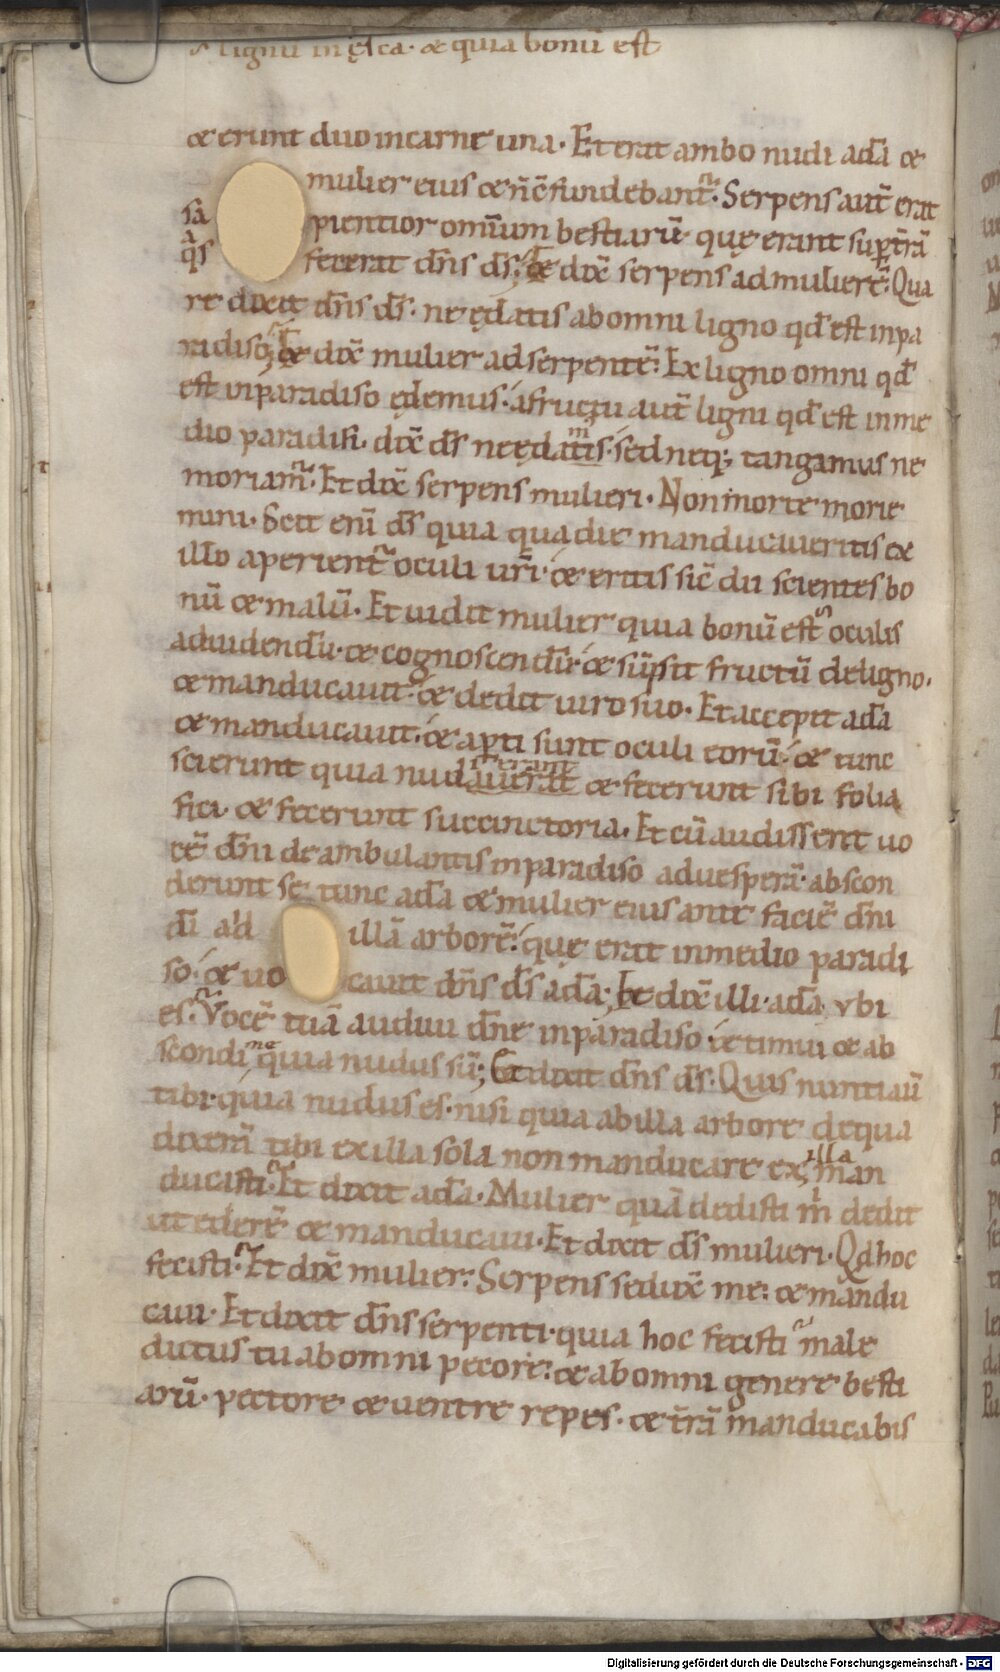 s lignũ in ęsca· & quia bonũ est
& erunt duo in carne una· Et erat ambo nudi adã &
mulier eius & n̄ cf̄undebant᷑· Serpens aut̄ erat
sã pientior omĩum bestiarũ quę erant sup̱ t̄rã
q̊s fecerat dñs d̄s; Et dix̄ serpens ad mulierẽ· Qua
re dixit dñs d̄s· ne ędatis ab omni ligno qd̄ est in pa
radiso; Et dix̄ mulier ad serpentẽ· Ex ligno omni qd̄
est in paradiso ędemus· a fructu aut̄ ligni qd̄ est in me
dio paradisi· dix̄ d̄s ne ędatis· sed neq; tangamus ne
m
moriam᷑· Et dix̄ serpens mulieri· Non morte morie
mini· Scit enĩ d̄s quia qua die manducaueritis ex
illo aperient᷑ oculi ur̄i· & eritis sic̄ dii scientes bo
nũ & malũ· Et uidit mulier quia bonũ est oculis
ad uidendũ· & cognoscendũ· & sũpsit fructũ de ligno·
& manducauit· & dedit uiro suo· Et accepit adã
& manducauit· & ap̱ti sunt oculi eorũ· & tunc
scierunt quia nudauerat & fecerunt sibi folia
s· erant
fici· & fecerunt succinctoria· Et cũ audissent uo
cẽ dñi deambulantis in paradiso ad uesperã· abscon
derunt se tunc adã & mulier eius ante faciẽ dñi
dĩ ad illã arborẽ· quę erat in medio paradi
so· & uo cauit dñs d̄s adã; Et dix̄ illi· adã, vbi
es· Vocẽ tuã audiui dñe in paradiso· & timui & ab
scondi me quia nudus sũ; Et dixit dñs d̄s· Quis nuntiauit̄
tibi· quia nudus es· nisi quia ab illa arbore de qua
dixerã tibi ex illa sola non manducare ex illa man
ducasti· Et dixit adã· Mulier quã dedisti m̊ dedit
ut ederẽ & manducaui· Et dixit d̄s mulieri· Qd hoc
fecisti· Et dix̄ mulier· Serpens sedux̄ me· & mandu
caui· Et dixit dñs serpenti· quia hoc fecisti male
dictus tu ab omni pecore· & ab omni genere besti
arũ· pectore & uentre repes· & t̄rã manducabis
Digitalisierung gefördert durch die Deutsche Forschungsgemeinschaft - DFG